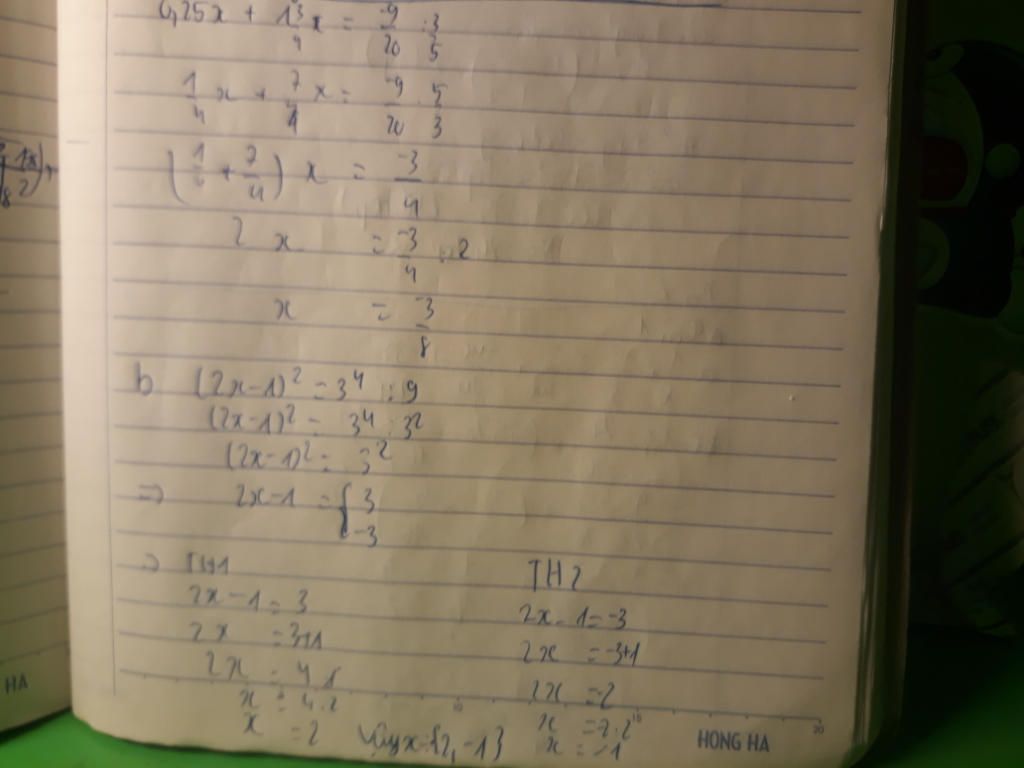 0,25x + 1 3/4 x = -9/20 : 3/5
1/4 x + 7/4 x = -9/20 . 5/3
(1/4 + 7/4) x = -3/4
2 x = -3/4 : 2
x = -3/8
b (2x-1)² = 3⁴ : 9
(2x-1)² = 3⁴ : 3²
(2x-1)² = 3²
=> 2x-1 = { 3
-3
=> TH1
2x-1 = 3
2x = 3+1
2x = 4
x = 4:2
x = 2
TH2
2x-1=-3
2x = -3+1
2x = -2
x = -2:2
x = -1
Vậy x={2,-1}
HONG HA
HA